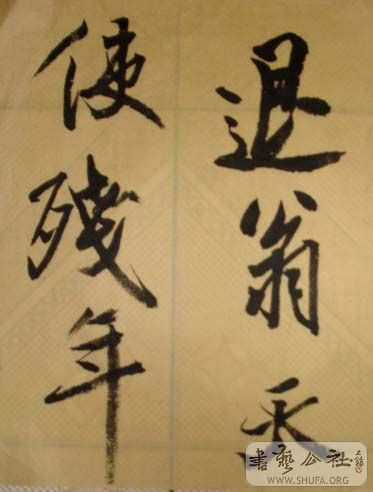 退翁天
使残年
書藝公社
WWW.SHUFA.ORG